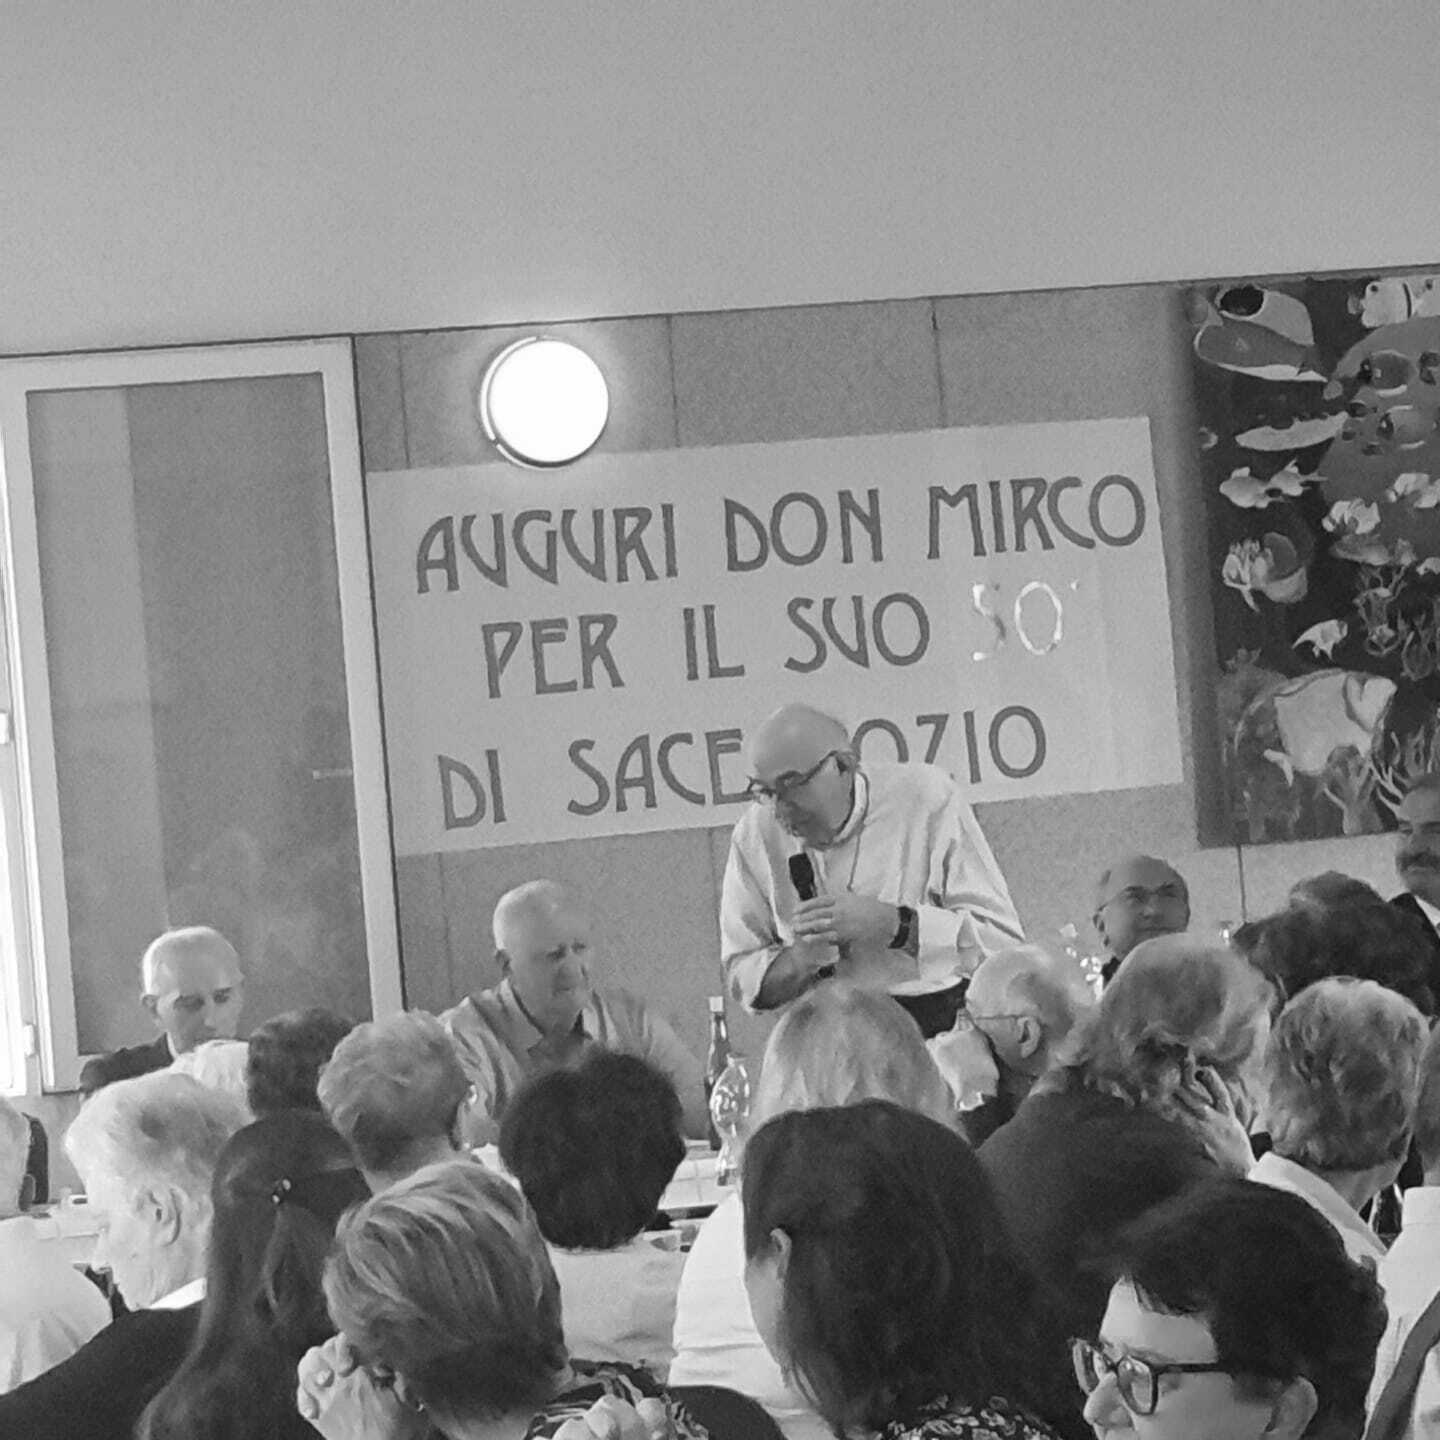 AUGURI DON MIRCO
PER IL SUO 50°
DI SACE OZIO